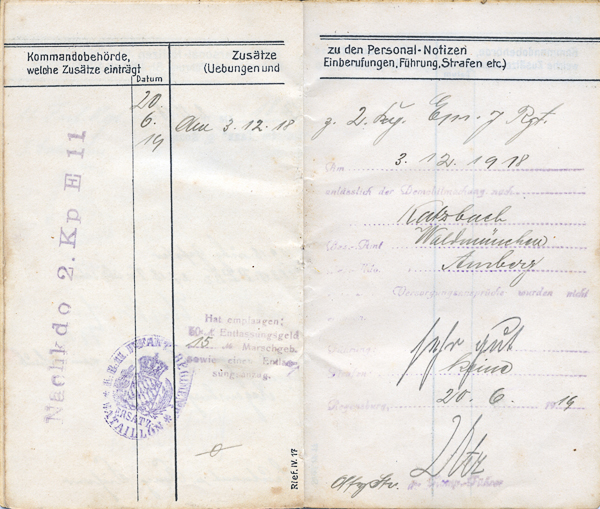 Kommandobehörde,
welche Zusätze einträgt
Datum
Zusätze
(Uebungen und
20.
6.
19
Am 3.12.18
Nachkdo 2.Kp E 11
Hat empfangen:
50 M Entlassungsgeld
15 M Marschgeb.
sowie einen Entlas-
sungsanzug.
ERSATZ
BATAILLON
Rief. IV. 17
zu den Personal-Notizen
Einberufungen, Führung, Strafen etc.)
z. 2. Kp. Ers. J. Rgt.
Am
3.12.1918
anlässlich der Demobilmachung nach
Katzbach
Waldmünchen
Amberg
Versorgungsansprüche wurden nicht
sehr gut
keine
Regensburg, 20.6. 1919